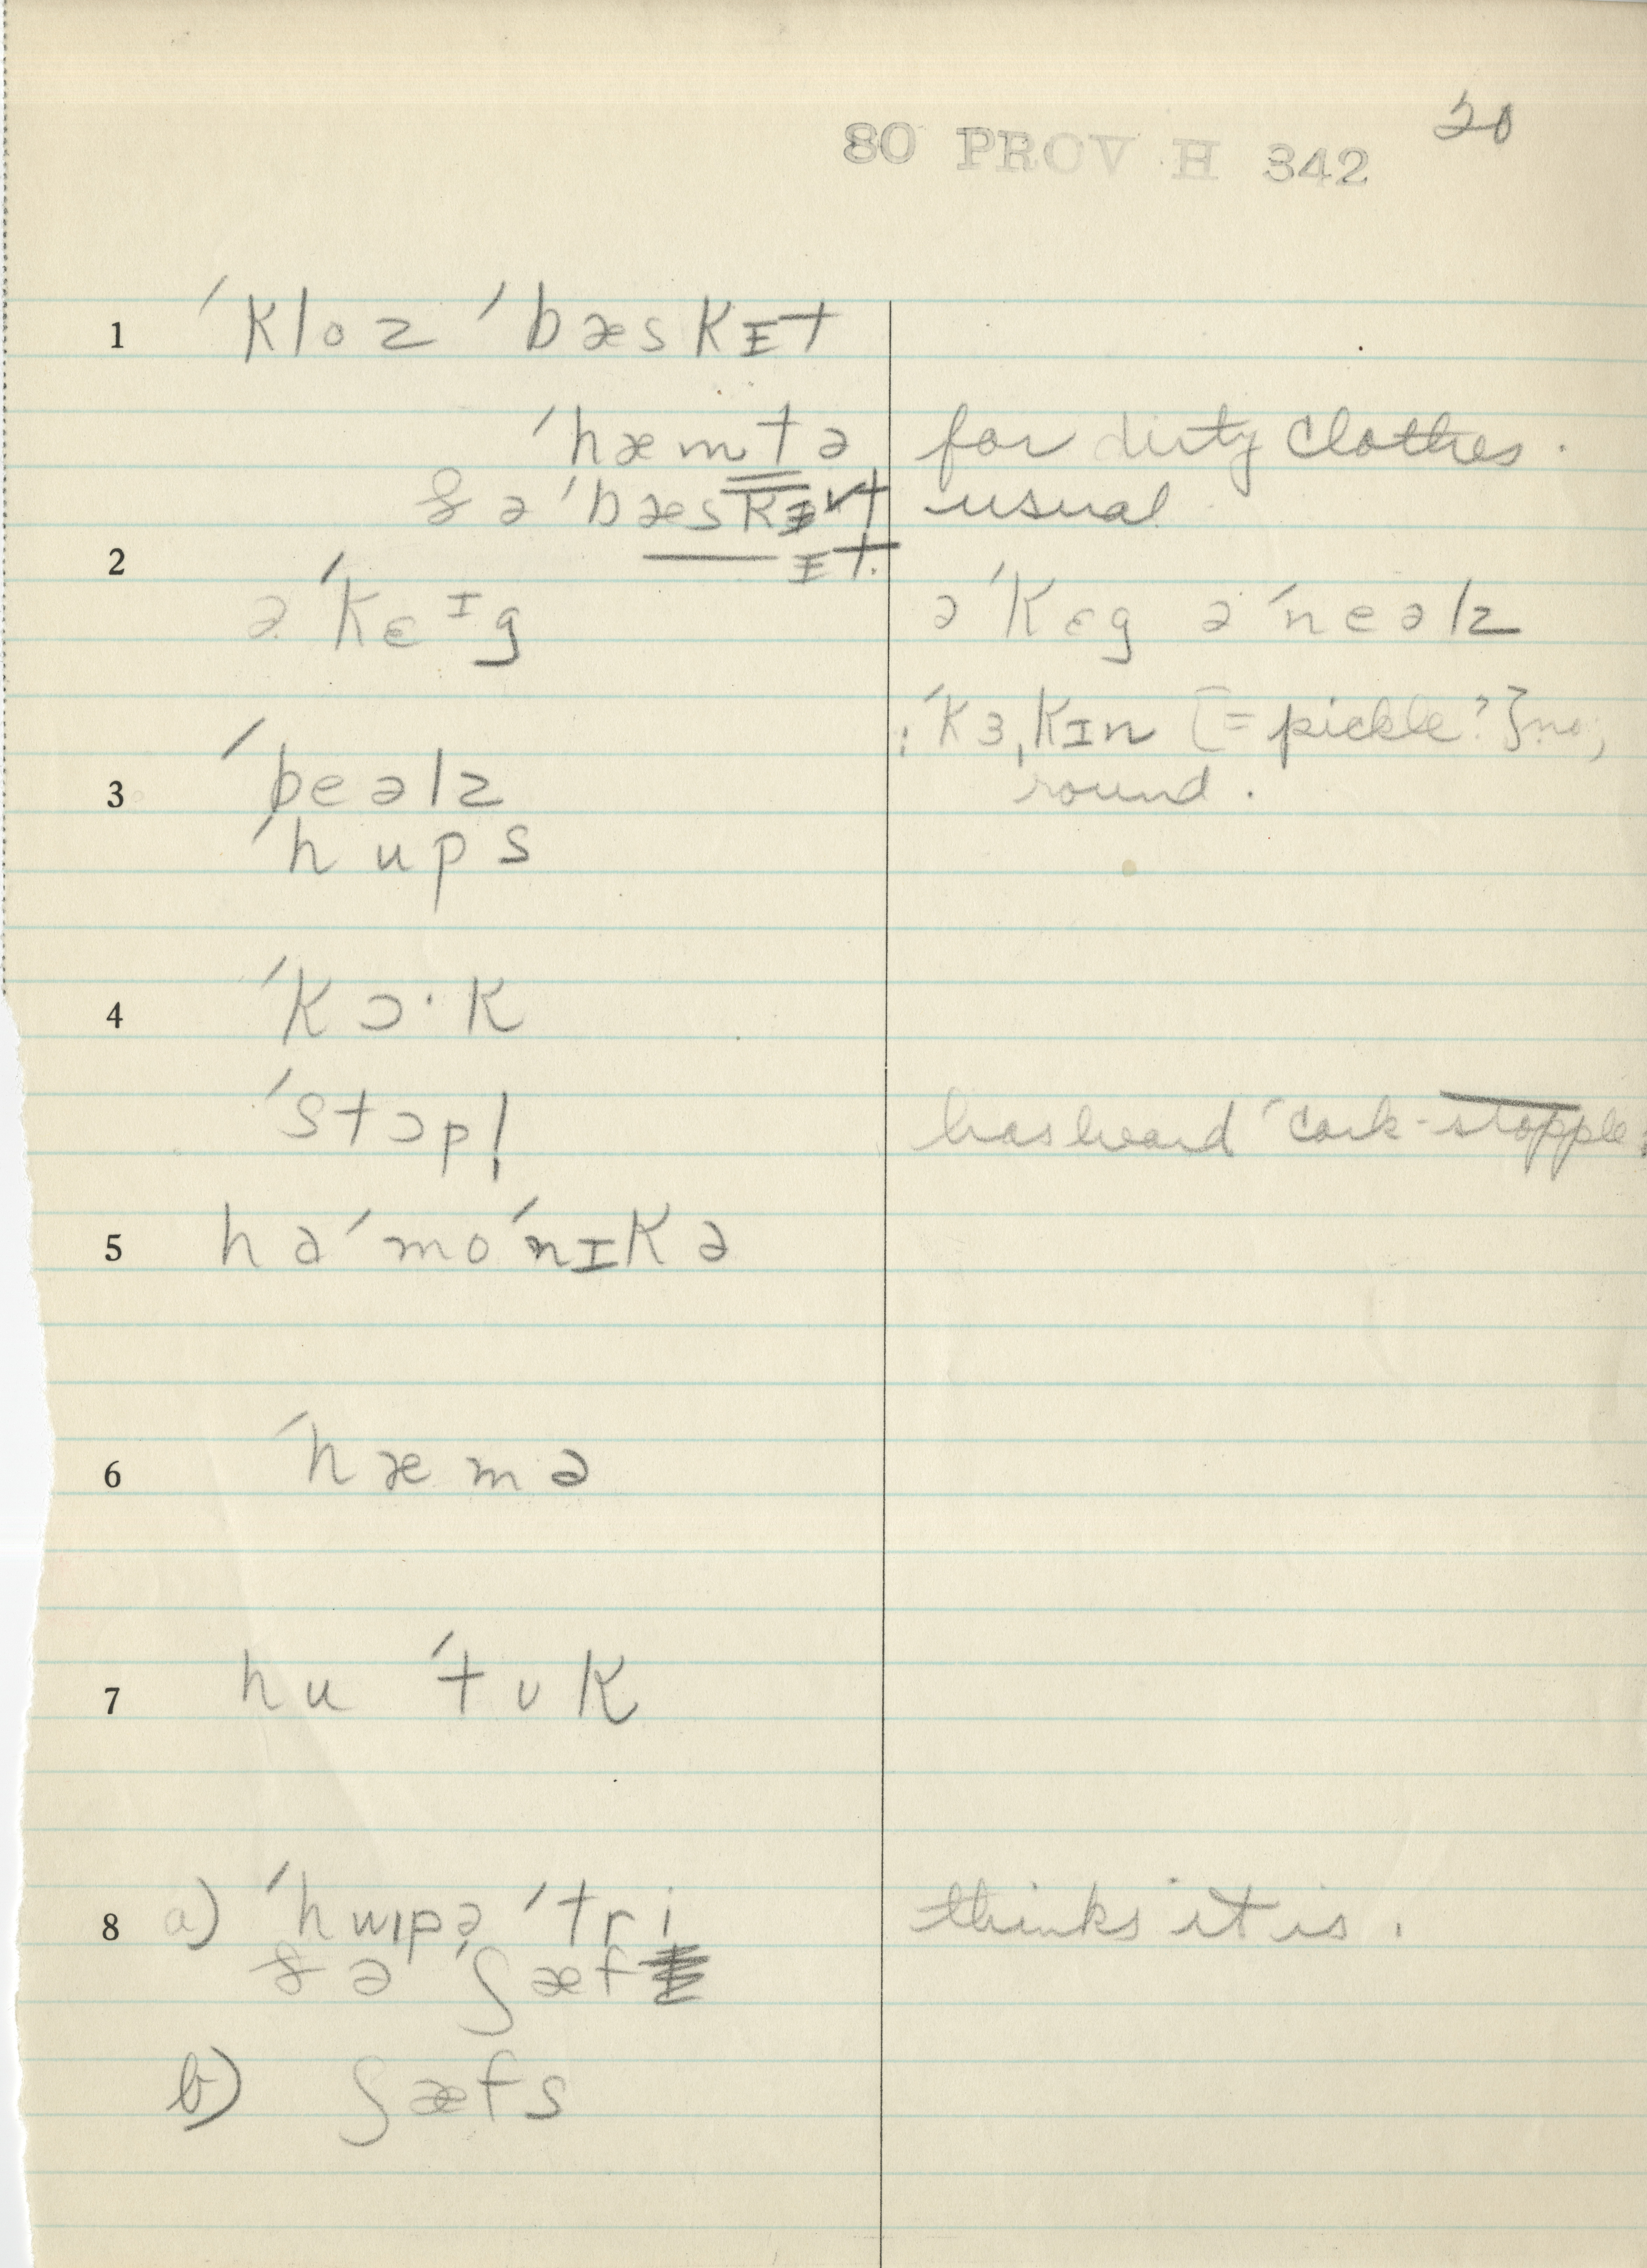 20
80 PROV H 342
1 ˈkloz ˈbæskɪt
ˈhæmtə for dirty clothes.
& ə ˈbæsk usual
ɪt.
2 ə ˈkɛᶦg ə ˈkɛg ə ˈneəlz
: ˈkɜˌkɪn [= pickle?] no;
3 ˈpeəlz round.
ˈhups
4 ˈkɔ·k
ˈstɔpl̩ has heard ˈcork-stopple
5 həˈmoˈnɪkə
6 ˈhæmə
7 hu ˈtʊk
8 a) ˈhwɪpə ˈtri thinks it is.
& ə ˈʃæf
b) ʃæfs